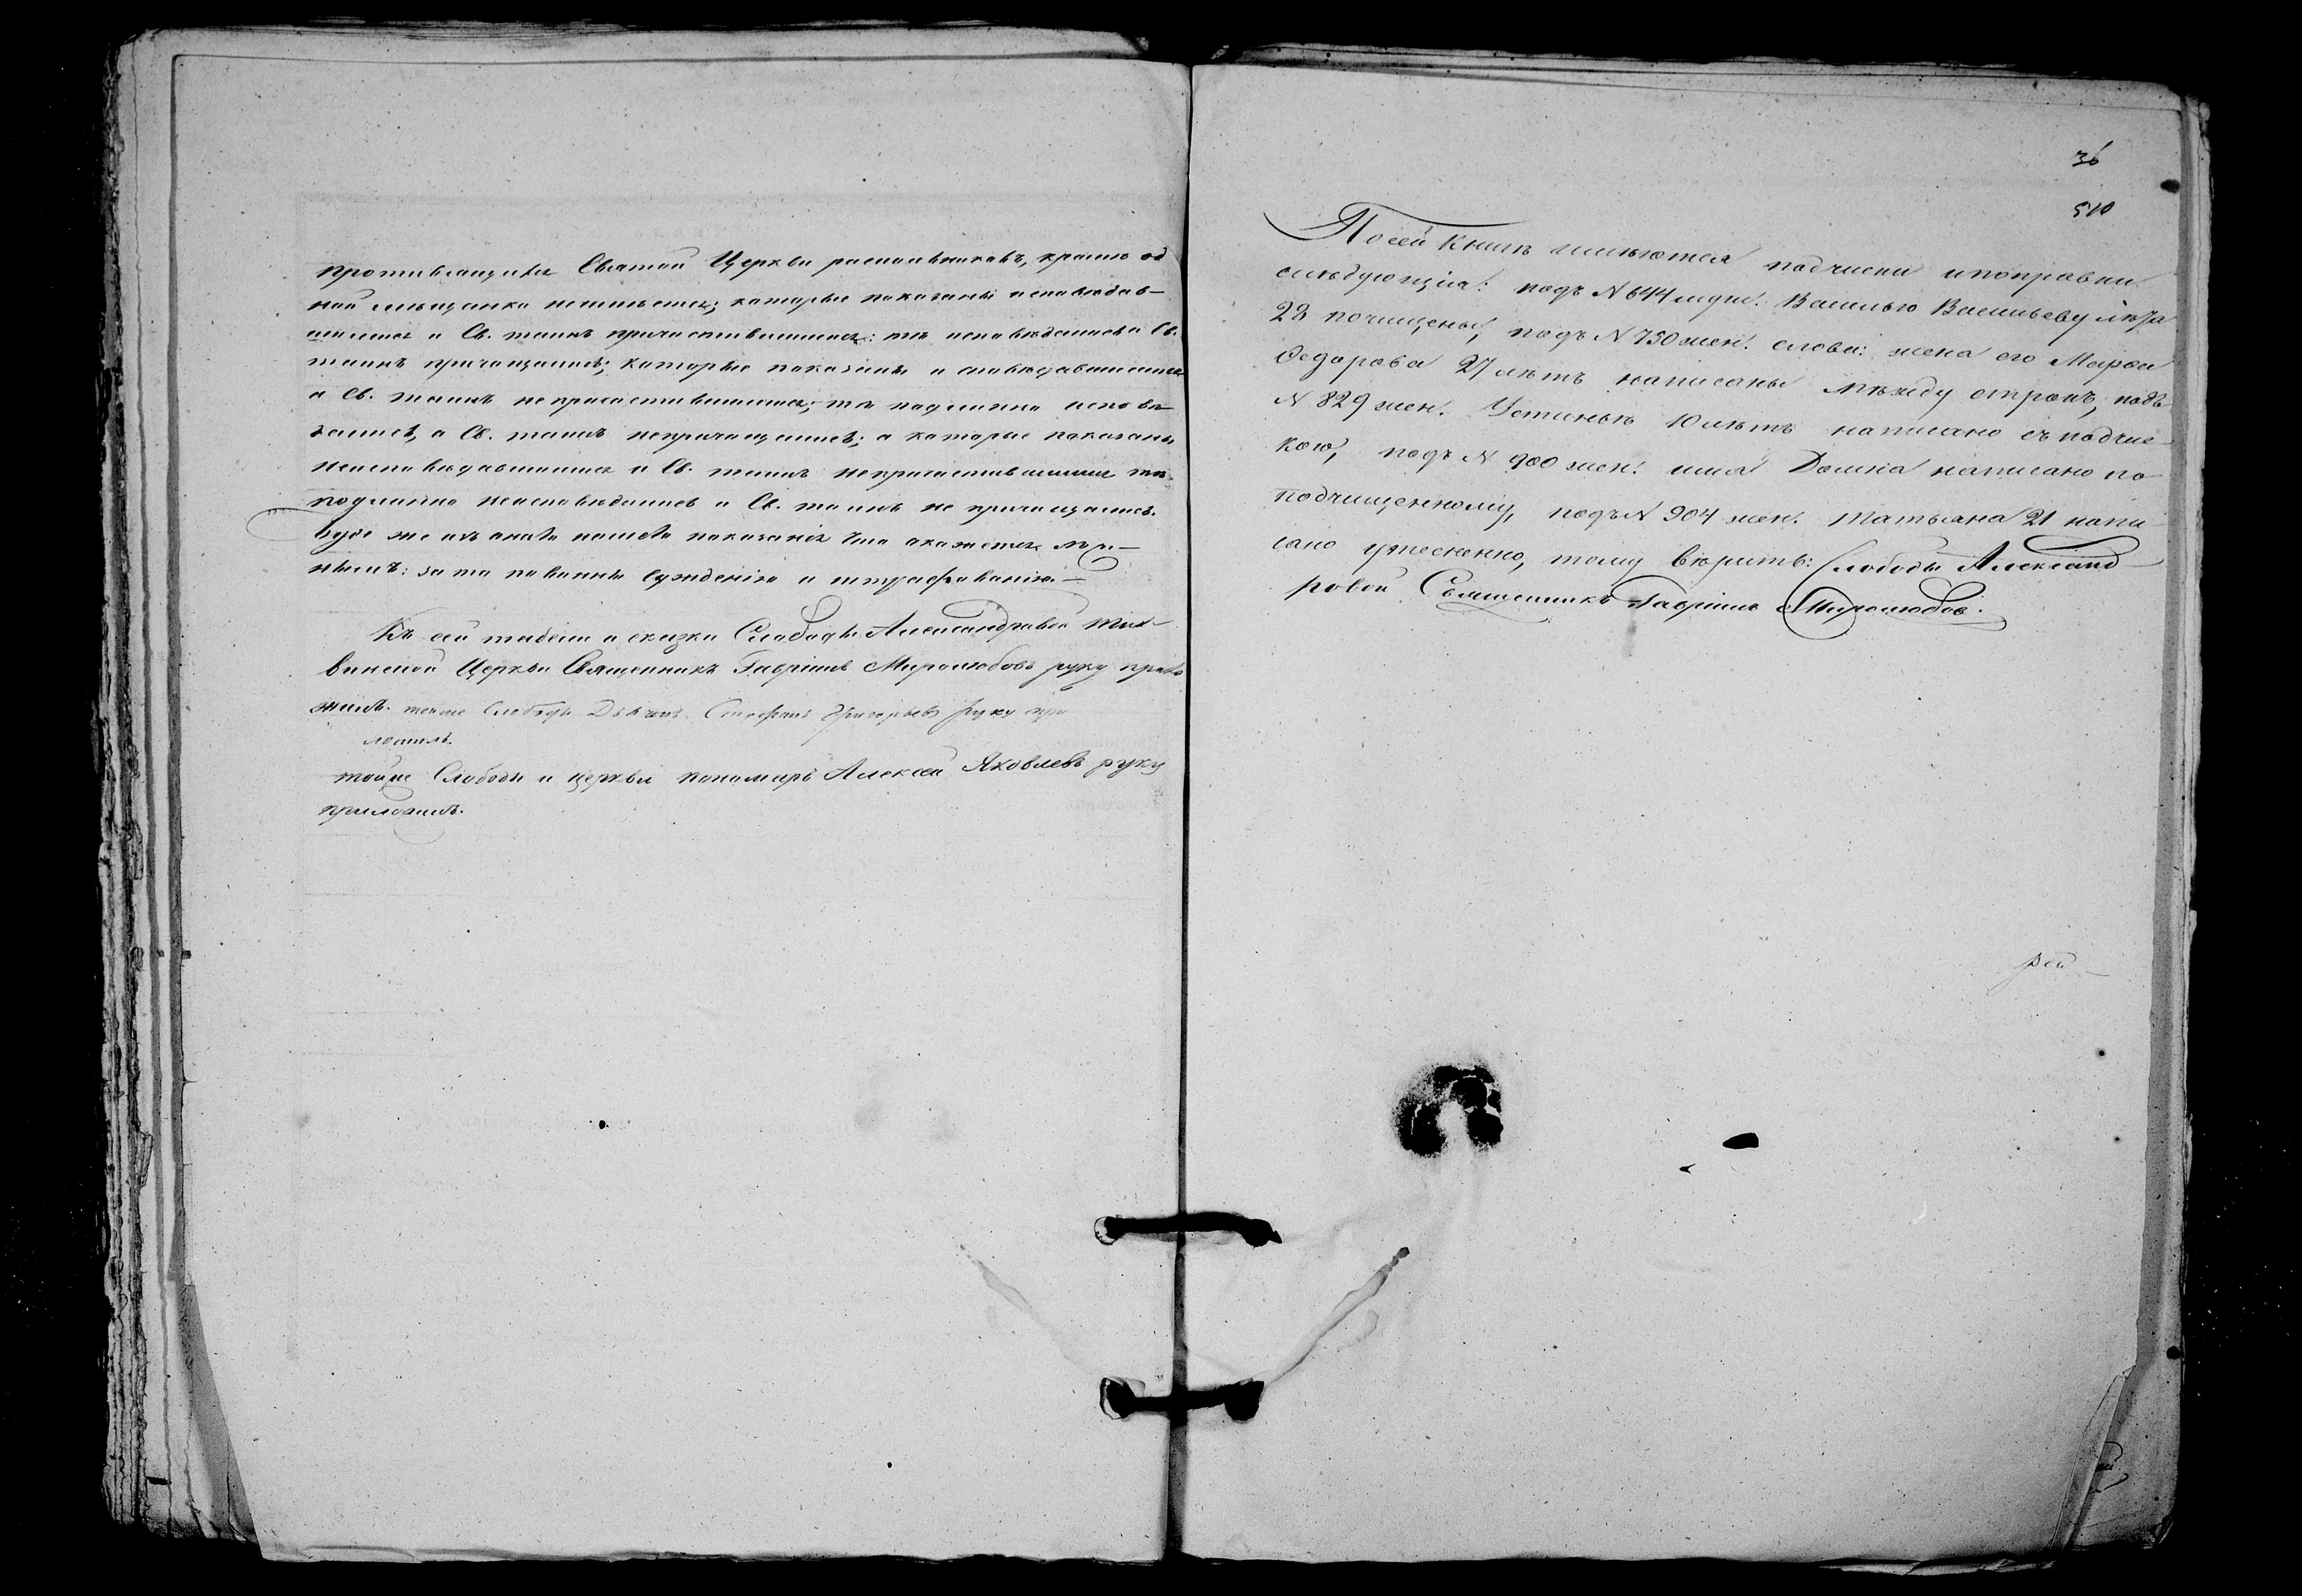 противящихся Святой Церкви раскольниковъ, кроме од
ной мещанки неимеется; которые показаны исповедав-
шимися и Св. таинъ причастившимися: те исповедались и Св.
таинъ причащались; которые показаны исповедавшимися
а Св. таинъ непричастившимися; те подлинно испове
дались, а Св. таинъ непричащались; а которые показаны
неисповедавшимися и Св. таинъ непричастившимися те
подлинно неисповедались и Св. таинъ не причащались.
буде же изъ онаго нашего показанія что окажется лож-
нымъ: за то повинны сужденію и штрафованію.
Къ сей табели и сказки Слободы Александровой Тих-
винской Церкви Священникъ Гавріилъ Миролюбовъ руку прило
жилъ. тойже Слободы Дьячекъ Стефанъ Григорьевъ руку при
ложилъ.
тойже Слободы и церкви пономарь Алексей Яковлевъ руку
приложилъ.
36
510
По сей Книге имеются подчиски и поправки
следующія: подъ N 644 муж. Василью Васильеву лета
28 почищены, подъ N 750 жен. слова: жена его Марфа
Федорова 27 летъ написаны между строкъ, подъ
N 829 жен. Устинье 10 летъ написано съ подчис-
кою, подъ N 900 жен. имя Домна написано по
подчищенному, подъ N 904 жен. Татьяна 21 напи
сано утесненно, тому верить: Слободы Александ
ровой Священникъ Гавріилъ Миролюбовъ.
рей